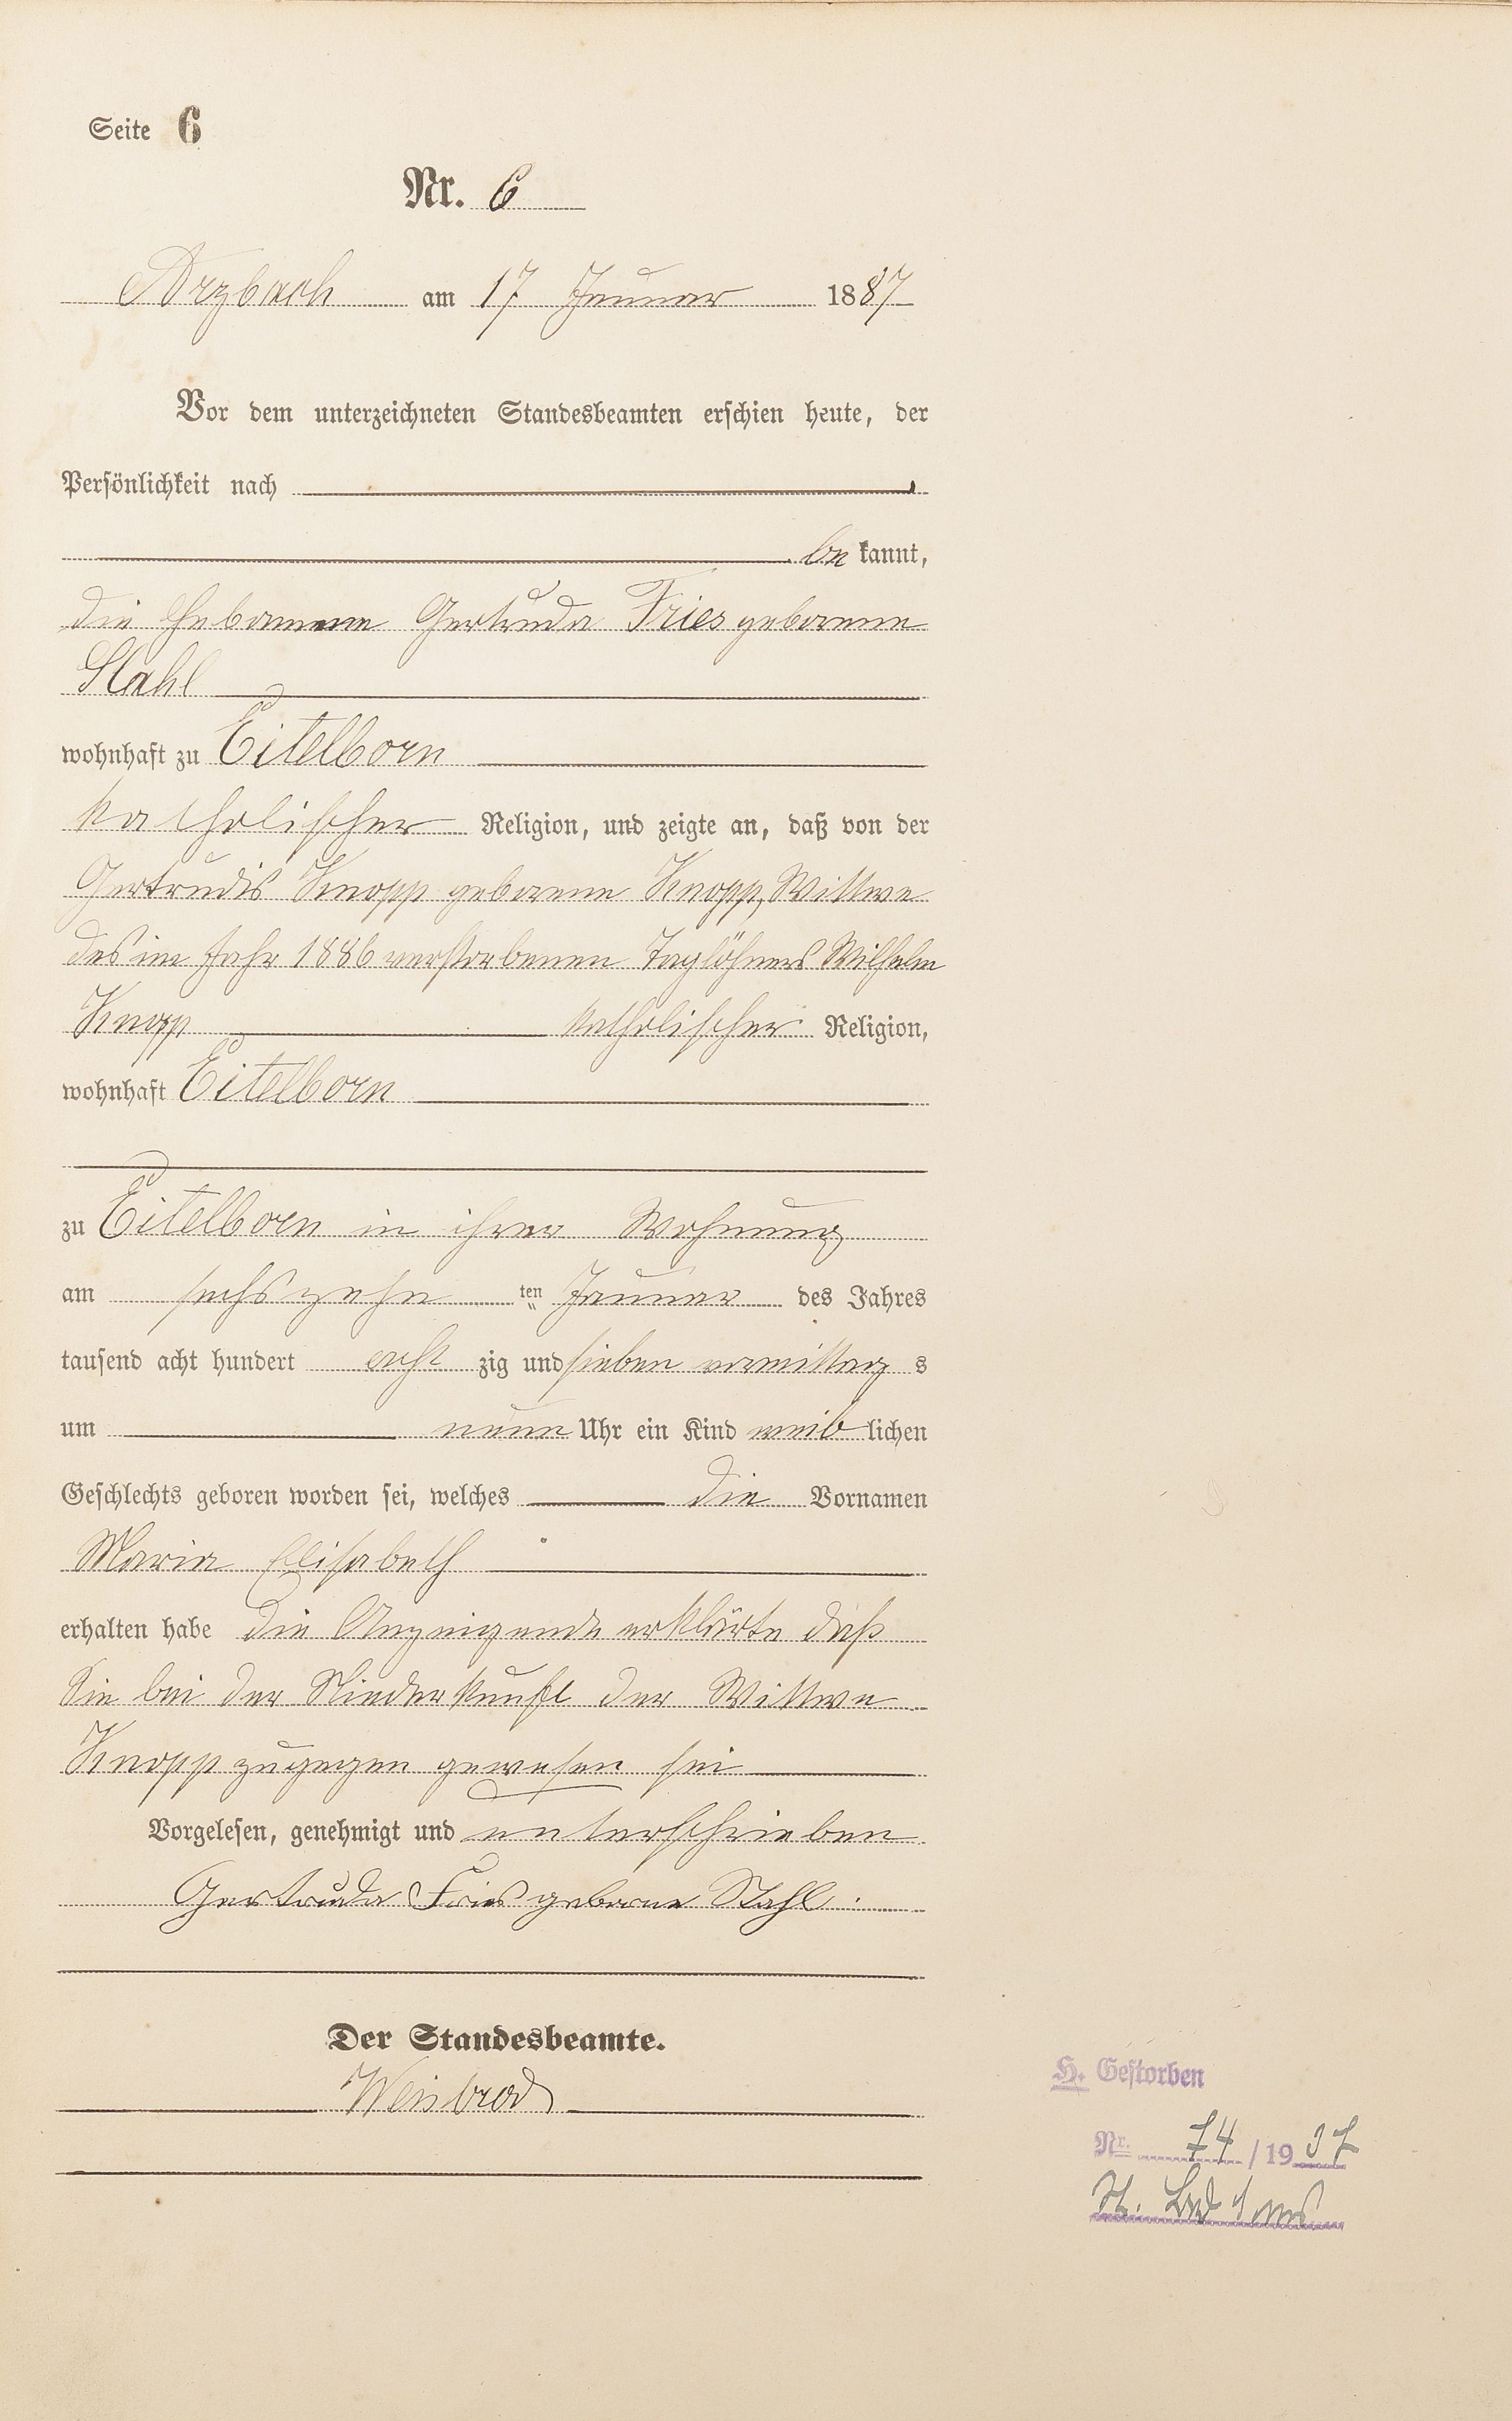 Seite 6
Nr. 6
Arzbach am 17 Januar 1887
Vor dem unterzeichneten Standesbeamten erschien heute, der
Persönlichkeit nach
be kannt,
die Hebamme Gertruda Fries geborene
Stahl
wohnhaft zu Eitelborn
katholischer Religion, und zeigte an, daß von der
Gertrudis Knopp geborene Knopp, Wittwe
des im Jahr 1886 verstorbenen Taglöhners Wilhelm
Knopp katholischer Religion,
wohnhaft Eitelborn
zu Eitelborn in ihrer Wohnung
am sechszehn ten Januar des Jahres
tausend acht hundert acht zig und sieben vormittag s
um neun Uhr ein Kind weib lichen
Geschlechts geboren worden sei, welches die Vornamen
Maria Elisabeth
erhalten habe die Anzeigende erklärte daß
Sie bei der Niederkunft der Wittwe
Knopp zugegen gewesen sei
Vorgelesen, genehmigt und unterschrieben
Gertruda Fries geborne Stahl.
Der Standesbeamte.
Weisbrod
H. Gestorben
Nr. 74 / 19 37
St. Bad Ems